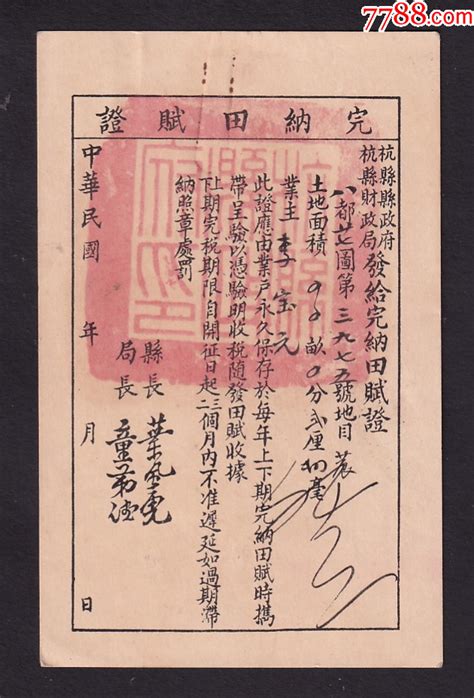 7788.com
完納田賦證
杭縣縣政府
杭縣財政局發給完納田賦證
八都廿七圖第三九七五號地目農
土地面積 畝 分弍厘 毫
業主 李宝元
此證應由業戶永久保存於每年上下期完納田賦時攜
帶呈驗以憑驗明收稅隨發田賦收據
上下期完稅期限自開征日起 個月內不准遲延如過期滯
納照章處罰
縣長 葉風虎
局長 童第德
中華民國 年 月 日